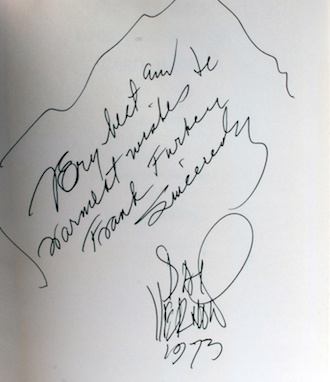 Very best and
warmest wishes to
Frank Furkey
Sincerely
DAI
VERNON
1973